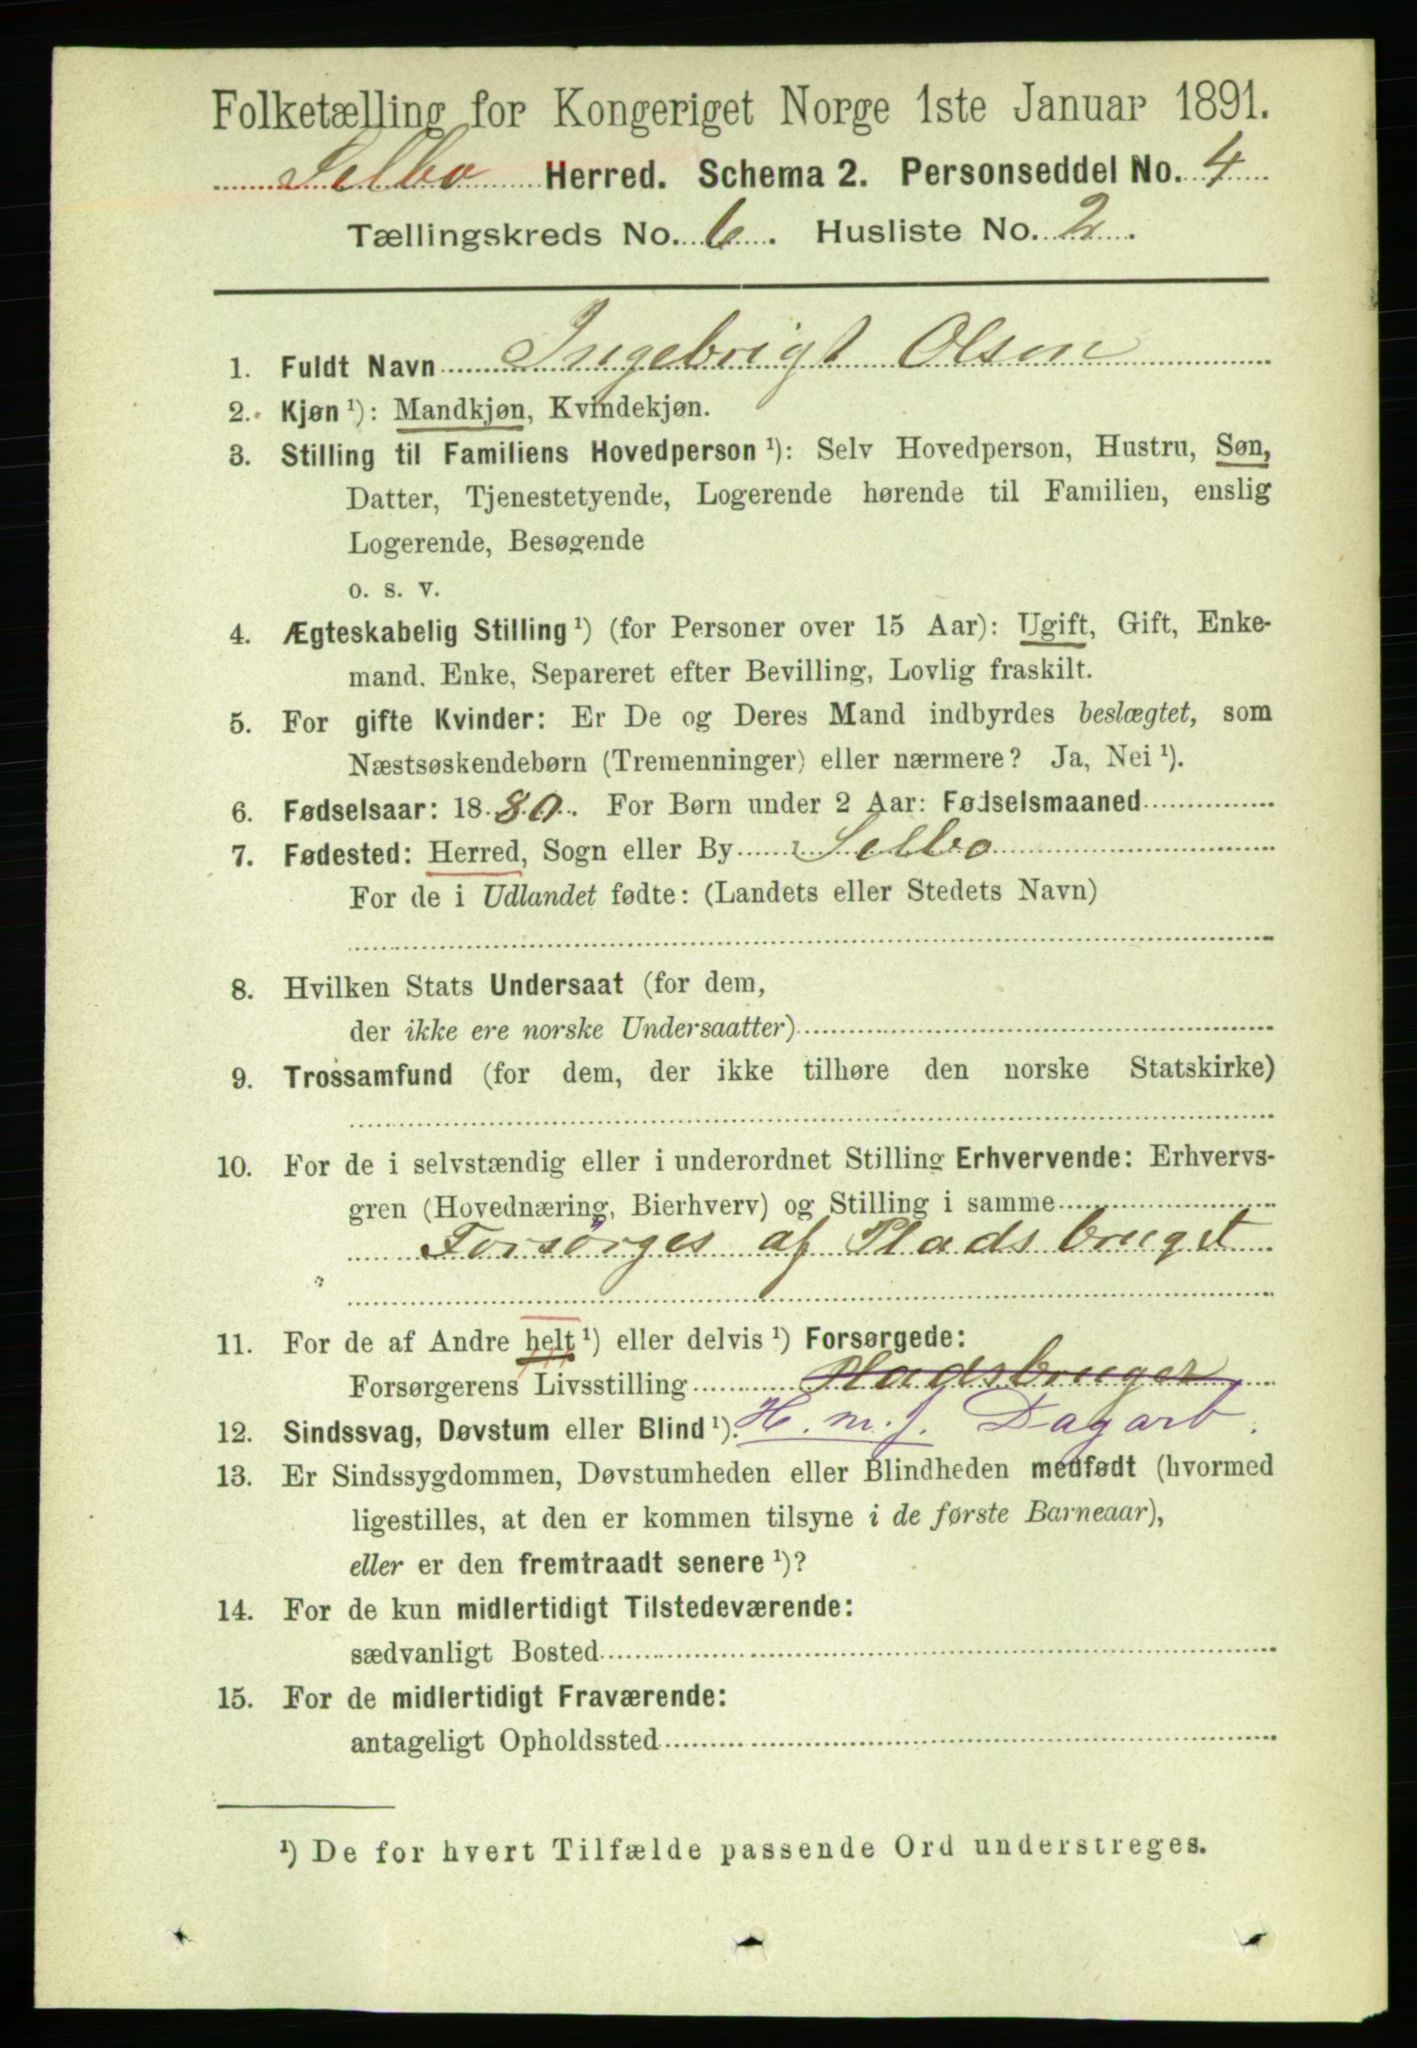 Folketælling for Kongeriget Norge 1ste Januar 1891.
Selbo Herred. Schema 2. Personseddel No. 4
Tællingskreds No. 6. Husliste No. 2.
1. Fuldt Navn Ingebrigt Olsen
2. Kjøn ¹): Mandkjøn, Kvindekjøn.
3. Stilling til Familiens Hovedperson ¹): Selv Hovedperson, Hustru, Søn,
Datter, Tjenestetyende, Logerende hørende til Familien, enslig
Logerende, Besøgende
o. s. v.
4. Ægteskabelig Stilling ¹) (for Personer over 15 Aar): Ugift, Gift, Enke-
mand. Enke, Separeret efter Bevilling, Lovlig fraskilt.
5. For gifte Kvinder: Er De og Deres Mand indbyrdes beslægtet, som
Næstsøskendebørn (Tremenninger) eller nærmere? Ja, Nei ¹).
6. Fødselsaar: 1880. For Børn under 2 Aar: Fødselsmaaned
7. Fødested: Herred, Sogn eller By Selbo
For de i Udlandet fødte: (Landets eller Stedets Navn)
8. Hvilken Stats Undersaat (for dem,
der ikke ere norske Undersaatter)
9. Trossamfund (for dem, der ikke tilhøre den norske Statskirke)
10. For de i selvstændig eller i underordnet Stilling Erhvervende: Erhvervs-
gren (Hovednæring, Bierhverv) og Stilling i samme
Forsørges af Pladsbruget
11. For de af Andre helt ¹) eller delvis ¹) Forsørgede:
Forsørgerens Livsstilling Pladsbruger
12. Sindssvag, Døvstum eller Blind ¹). H. m. f. Dagarb.
13. Er Sindssygdommen, Døvstumheden eller Blindheden medfødt (hvormed
ligestilles, at den er kommen tilsyne i de første Barneaar),
eller er den fremtraadt senere ¹)?
14. For de kun midlertidigt Tilstedeværende:
sædvanligt Bosted
15. For de midlertidigt Fraværende:
antageligt Opholdssted
¹) De for hvert Tilfælde passende Ord understreges.